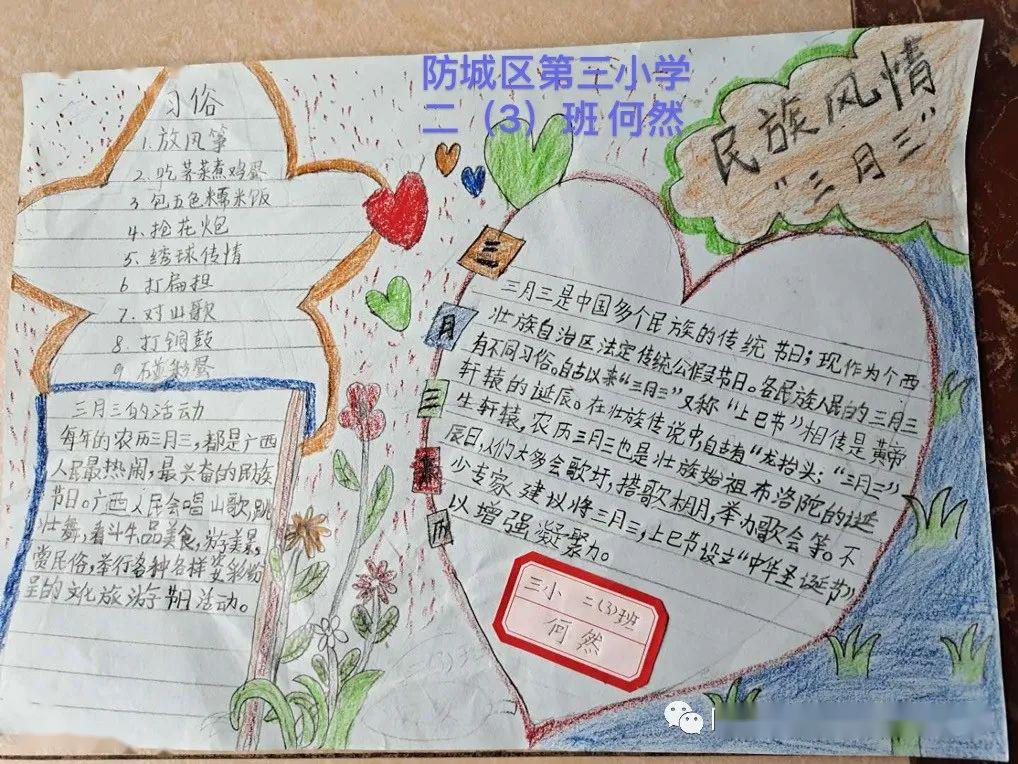 防城区第三小学
二（3）班 何然
民族风情
“三月三”
习俗
1.放风筝
2.吃荠菜煮鸡蛋
3.包五色糯米饭
4.抢花炮
5.绣球传情
6 打扁担
7.对山歌
8.打铜鼓
9 碰彩蛋
三月三的活动
每年的农历三月三，都是广西
人民最热闹，最兴奋的民族
节日。广西人民会唱山歌，跳
壮舞，看斗牛，品美食，游美景，
赏民俗，举行各种各样姿彩纷
呈的文化旅游节日活动。
三
月
三
由
三月三是中国多个民族的传统节日；现作为个西
壮族自治区法定传统公休节日。各民族人民的三月三
有不同习俗。自古以来“三月三”又称“上巳节”相传是黄帝
轩辕的诞辰。在壮族传说中，自古有“龙抬头；“三月三”
生轩辕，农历三月三也是壮族始祖布洛陀的诞
辰日，人们大多会歌圩，搭歌棚，举办歌会等。不
少专家建议将三月三，上巳节设立“中华圣诞节”
以增强凝聚力。
三小 二(3)班
何然